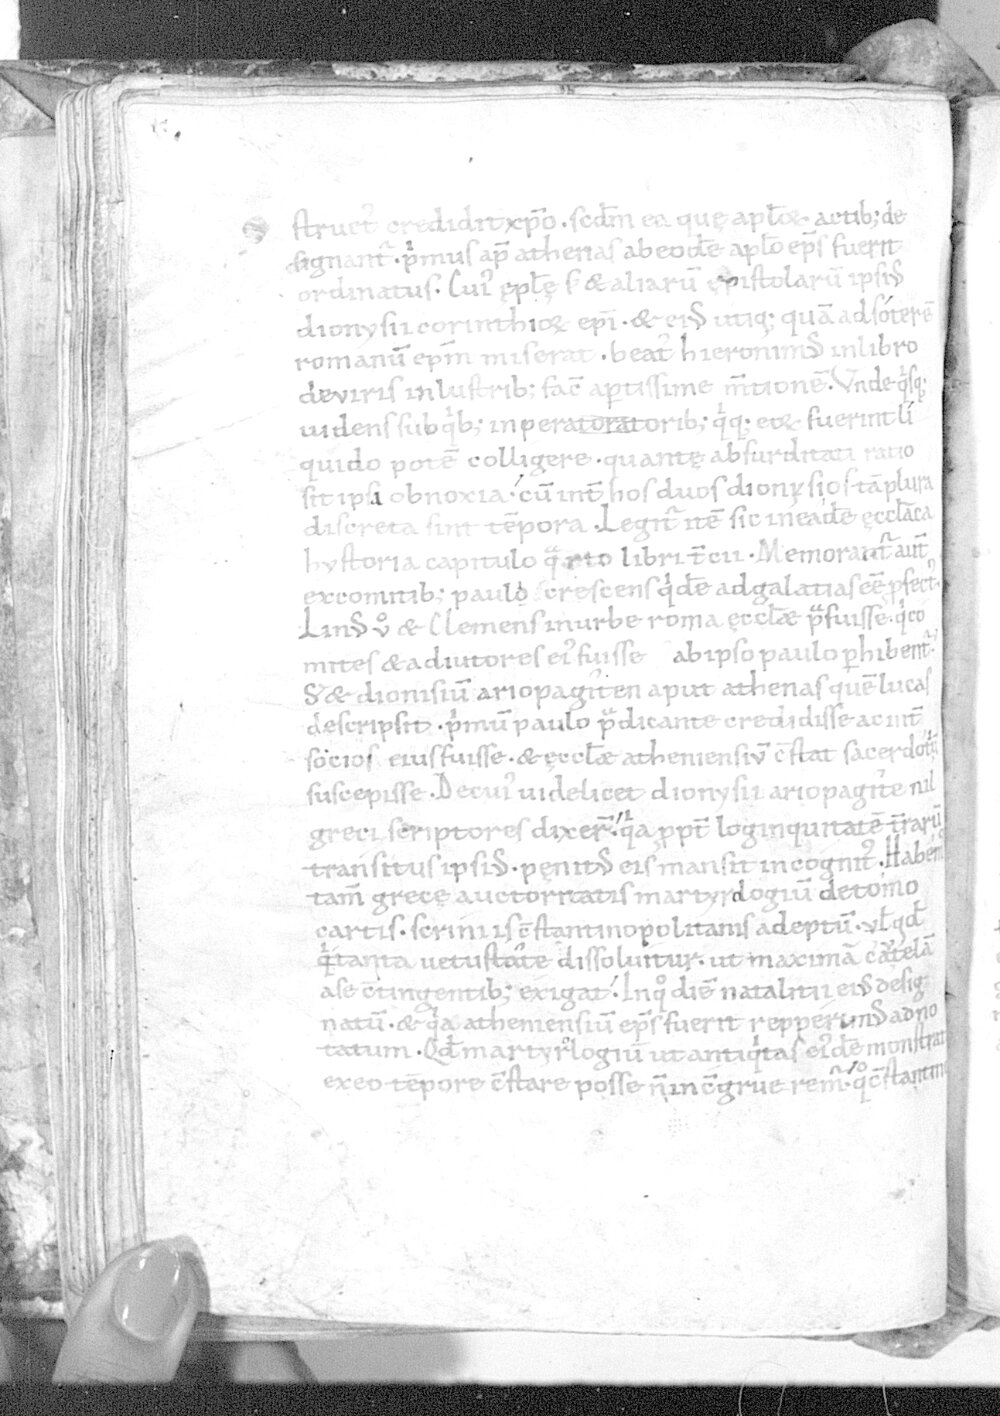 struct᷑ credidit xp̄o · scd̄m ea quę apl̄oꝝ actib; de
signant᷑ · p̍mus ap̄ athenas ab eodē apl̄o ep̄s fuerit
ordinatus · Cui᷑ ępl̄ę s; & aliarū ępistolarū ipsiꝰ
dionysii corinthioꝝ epī · & eiꝰ utiq; quā ad sóterē
romanū ep̄m miserat · beat᷑ hieronimꝰ in libro
de viris inlustrib; fac̄ aꝑtissime m̄tionē · Vnde q̍sq;
uidens sub q̍b; inperatoratorib; q̍q; eoꝝ fuerint li
quido potē colligere · quantę absurditati ratio
sit ipsa obnoxia · cū int̄ hos duos dionysios tā plura
discreta sint tēpora · Legit᷑ itē sic in eadē ęccl̄ăca
hystoria capitulo q̄rto libri t̄cii · Memorant᷑ aut̄
ex comitib; pauli crescens q̍dē ad galatias eē ꝓfect᷑
Linꝰ v̊ & Clemens in urbe roma ęccl̄æ p̄fuisse · q̍ co
mites & adiutores ei᷑ fuisse ab ipso paulo ꝑhibent᷑ ·
S; & dionisiū ariopagiten aput athenas quē lucas
descripsit · p̍mū paulo p̄dicante credidisse ac int̄
socios eius fuisse · & ęccl̄æ atheniensiū c̄stat sacerdotiū
suscepisse · De cui᷑ uidelicet dionysii ariopagite nil
greci scriptores dixer᷑ · q̍a ꝓpt̄ loginquitatē t̄rarū
transitus ipsiꝰ · pęnitꝰ eis mansit incognit᷑ · Habem᷑
tam̄ grecę auctoritatis martyrologiū de tomo
cartis · scriniis c̄stantinopolitanis adeptū · vl̄ qd̄
q̍ tanta uetustate dissoluitur · ut maximā cautelā
a se c̄tingentib; exigat · In qº die natalitii eiꝰ desig
natū · & q̍a atheniensiū ep̄s fuerit repperimꝰ adno
tatum · Qd̄ martyrologiū ut antiq̍tas ei᷑dē monstrat
ex eo tēpore c̄stare posse n̄ in c̄grue rem᷑ · qº c̄stantin᷑